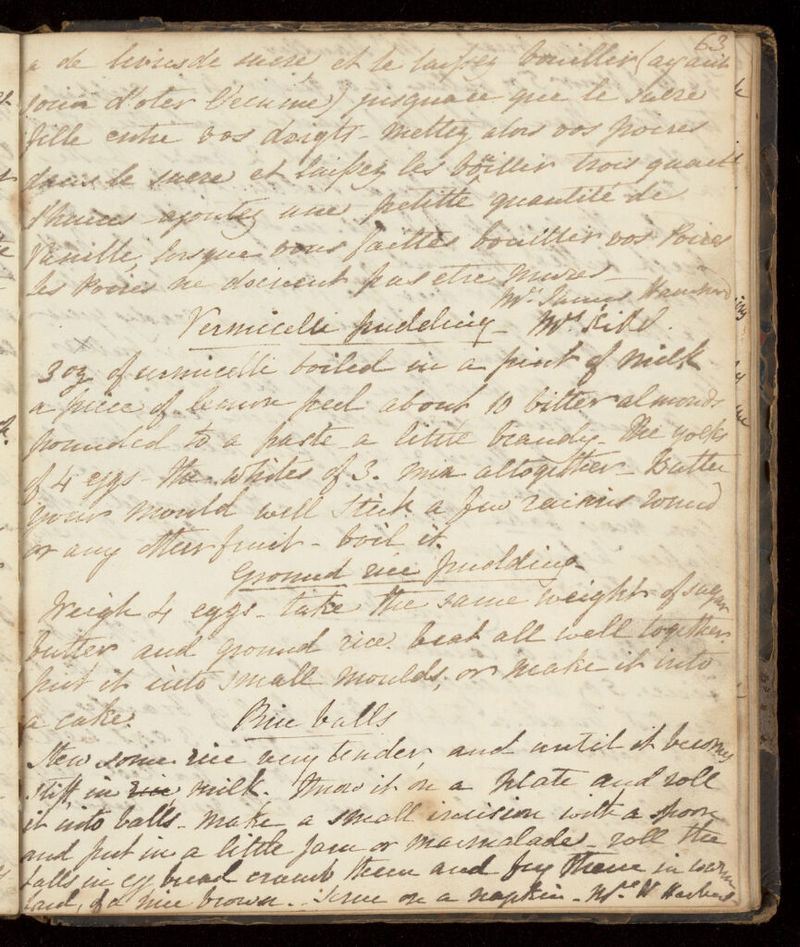 63
a de livres de sucre, et le laissez bouillir (ayant
soin d'oter l'ecume) jusquace que le sucre
fille entre vos doigts - Mettez alors vos poires
dans le sucre et laissez les böillir trois quarts
d'heures ajoutez une petitte quantité de
Vanille, lorsque vous faittes bouillir vos Poires
les Poires ne doivent pas etre mures -
Mrs James
Vermicelli pudding - Mrs
3 oz of vermicelli boiled in a pint of Milk
a piece of lemon peel about 10 bitter almonds
pounded to a paste a little brandy - The yolks
of 4 eggs - the whites of 3. mix altogether - Butter
your mould well stick a few raisins round
or any other fruit - boil it.
Ground rice pudding
Weigh 4 eggs - take the same weight of sugar
butter and ground rice. beat all well together
put it into small moulds, or make it into
a cake.
Rice balls
Stew some rice very tender, and until it becomes
stiff, in rice milk. Throw it on a plate and roll
it into balls - make a small incision with a spoon
and put in a little jam or marmalade - roll the
balls in egg bread crumb them and fry them in
lard, of a nice brown. - Serve on a napkin - Mrs W